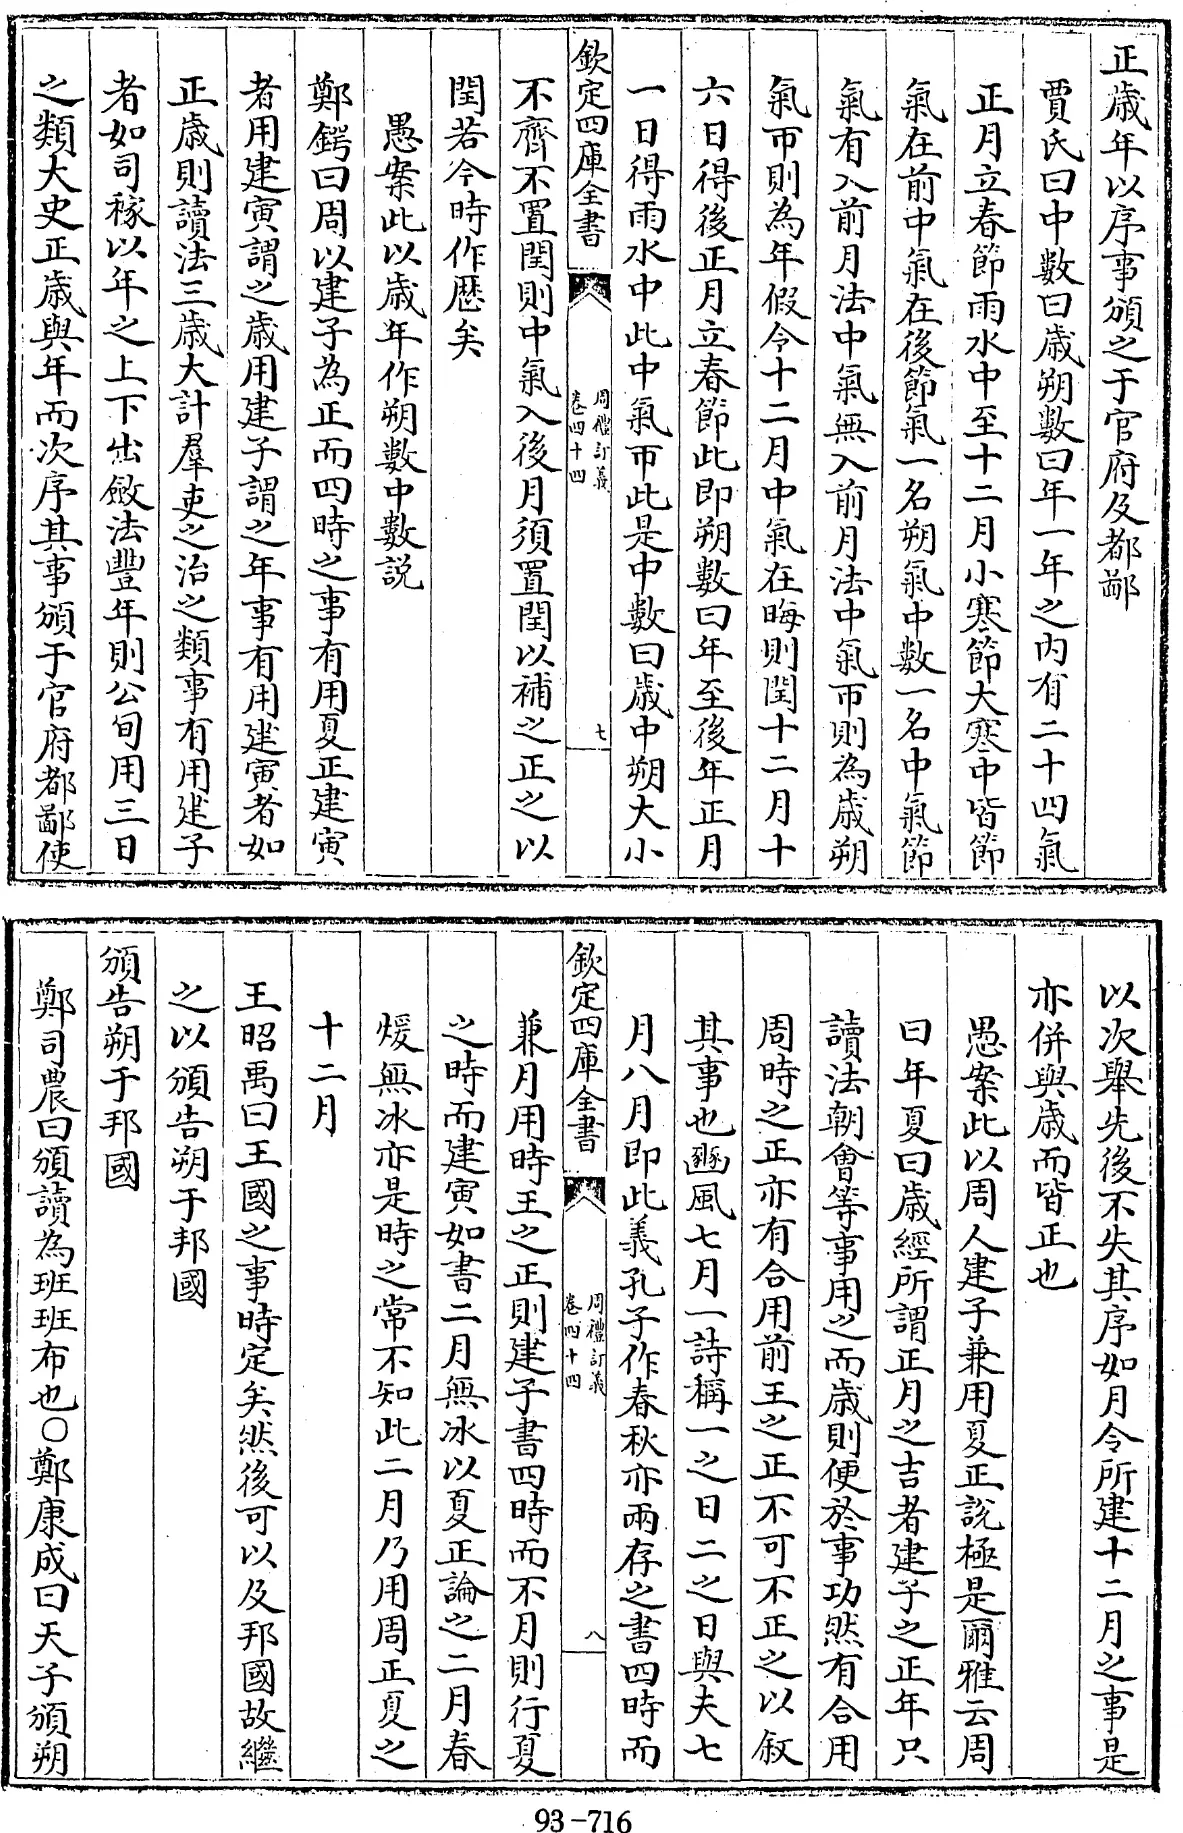 正歲年以序事頒之于官府及都鄙
賈氏曰中數曰歲朔數曰年一年之内有二十四氣
正月立春節雨水中至十二月小寒節大寒中皆節
氣在前中氣在後節氣一名朔氣中數一名中氣節
氣有入前月法中氣無入前月法中氣帀則為歲朔
氣帀則為年假令十二月中氣在晦則閏十二月十
六日得後正月立春節此即朔數曰年至後年正月
一日得雨水中此中氣帀此是中數曰歲中朔大小
欽定四庫全書
周禮訂義
卷四十四
七
不齊不置閏則中氣入後月須置閏以補之正之以
閏若今時作歷矣
愚案此以歲年作朔數中數説
鄭鍔曰周以建子為正而四時之事有用夏正建寅
者用建寅謂之歲用建子謂之年事有用建寅者如
正歲則讀法三歲大計羣吏之治之類事有用建子
者如司稼以年之上下出斂法豐年則公旬用三日
之類大史正歲與年而次序其事頒于官府都鄙使
以次舉先後不失其序如月令所建十二月之事是
亦併與歲而皆正也
愚案此以周人建子兼用夏正説極是爾雅云周
曰年夏曰歲經所謂正月之吉者建子之正年只
讀法朝會等事用之而歲則便於事功然有合用
周時之正亦有合用前王之正不可不正之以敘
其事也豳風七月一詩稱一之日二之日與夫七
月八月即此義孔子作春秋亦兩存之書四時而
欽定四庫全書
周禮訂義
卷四十四
八
兼月用時王之正則建子書四時而不月則行夏
之時而建寅如書二月無冰以夏正論之二月春
煖無冰亦是時之常不知此二月乃用周正夏之
十二月
王昭禹曰王國之事時定矣然後可以及邦國故繼
之以頒告朔于邦國
頒告朔于邦國
鄭司農曰頒讀為班班布也〇鄭康成曰天子頒朔
93-716